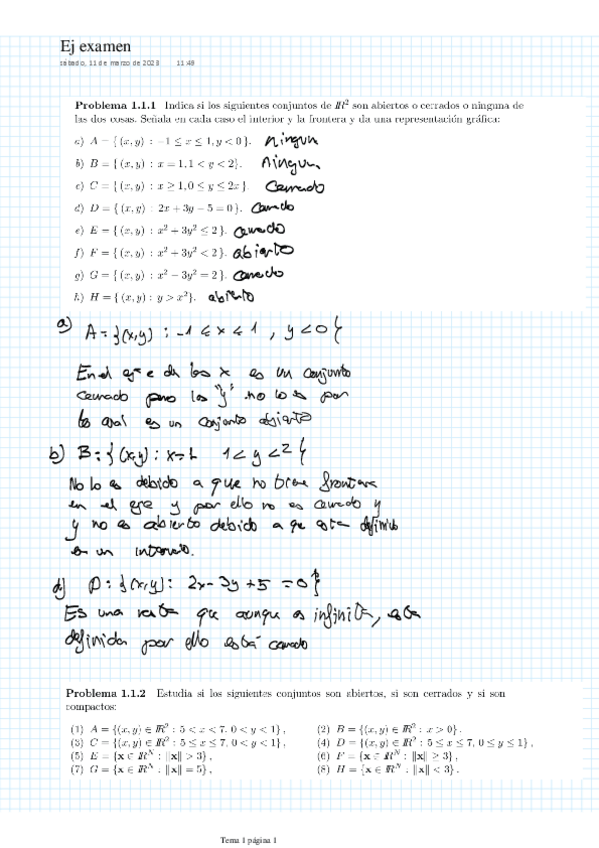 Ej examen
sábado, 11 de marzo de 2023 11:49
Problema 1.1.1 Indica si los siguientes conjuntos de IR² son abiertos o cerrados o ninguna de
las dos cosas. Señala en cada caso el interior y la frontera y da una representación gráfica:
a) A = { (x, y) : −1 ≤ x ≤ 1, y < 0 }. ningun
b) B = { (x, y) : x = 1, 1 < y < 2}. Ningun
c) C = { (x, y) : x ≥ 1, 0 ≤ y ≤ 2x }. Cerrado
d) D = { (x, y) : 2x + 3y − 5 = 0 }. Cerrado
e) E = { (x, y) : x² + 3y² ≤ 2 }. Cerrado
f) F = { (x, y) : x² + 3y² < 2 }. abierto
g) G = { (x, y) : x² − 3y² = 2 }. Cerrado
h) H = { (x, y) : y > x²}. abierto
a) A = {(x,y) : -1 ≤ x ≤ 1 , y < 0 {
En el eje de los x es un conjunto
cerrado pero los "y" no lo es por
lo cual es un conjunto abierto
b) B: { (x,y) : x=1 1 < y < 2 {
No lo es debido a que no tiene frontera
en el eje y por ello no es cerrado y
y no es abierto debido a que esta definido
en un intervalo.
d) D: {(x,y) : 2x - 3y + 5 = 0}
Es una recta que aunque es infinita, esta
definida por ello está cerrado
Problema 1.1.2 Estudia si los siguientes conjuntos son abiertos, si son cerrados y si son
compactos:
(1) A = {(x, y) ∈ IR² : 5 < x < 7, 0 < y < 1} , (2) B = {(x, y) ∈ IR² : x > 0} .
(3) C = {(x, y) ∈ IR² : 5 ≤ x ≤ 7, 0 < y < 1} , (4) D = {(x, y) ∈ IR² : 5 ≤ x ≤ 7, 0 ≤ y ≤ 1} ,
(5) E = {x ∈ IRᴺ : ‖x‖ > 3} , (6) F = {x ∈ IRᴺ : ‖x‖ ≥ 3} ,
(7) G = {x ∈ IRᴺ : ‖x‖ = 5} , (8) H = {x ∈ IRᴺ : ‖x‖ < 3} .
Tema 1 página 1